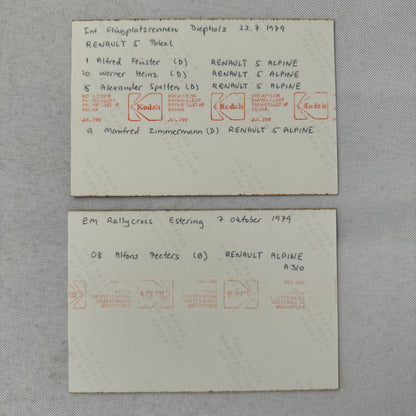 Int Flugplatzrennen Diepholz 22.7 1979
RENAULT 5 Pokal
1 Alfred Feüster (D) RENAULT 5 ALPINE
10 Werner Heinz (D) RENAULT 5 ALPINE
5 Alexander Spelten (D) RENAULT 5 ALPINE
Kodak
JUL 79V
9 Manfred Zimmermann (D) RENAULT 5 ALPINE
Em Rallycross Estering 7. Oktober 1979
08 Alfons Peeters (B) RENAULT ALPINE
A 310